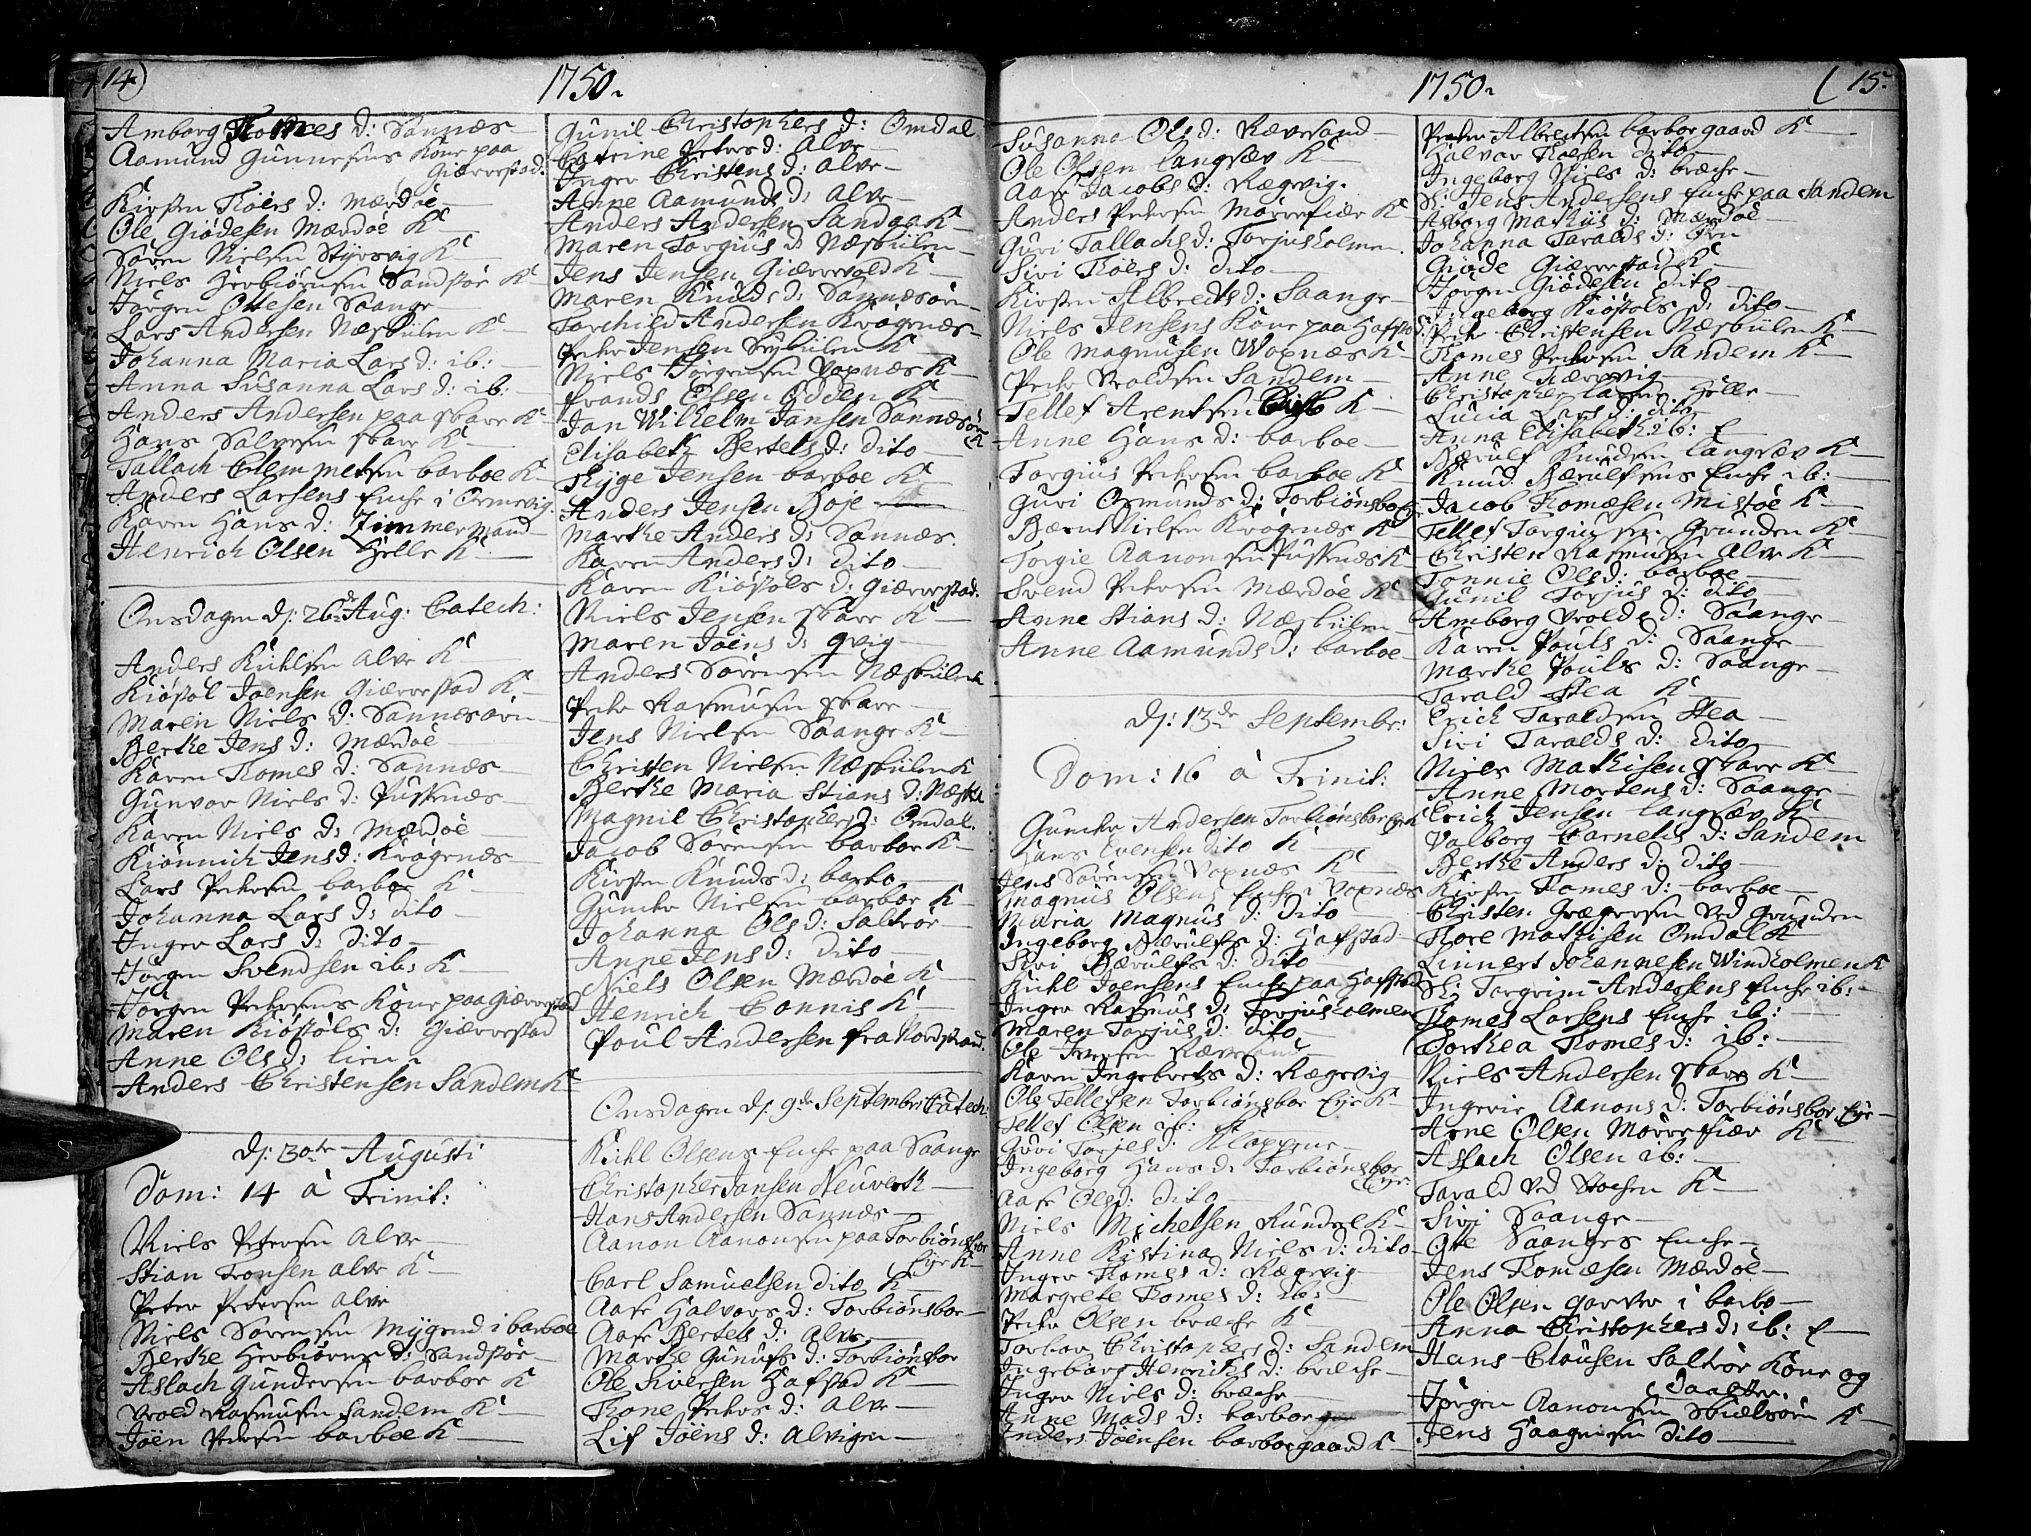 14)
1750.
Amborg Thomes d: Sannæs
Aamund Gunnersens Kone paa
Giærrestad.
Kirsten Thoers d: Mærdøe
Ole Giødesen Mærdøe K
Søren Nielsen Styrsvig K
Niels Herbiørnsen Sandstøe K
Jørgen Ottesen Saange
Lars Andersen Næskilen K
Johanna Maria Lars d: ib:
Anna Susanna Lars d: ib:
Anders Andersen paa Skare K
Hans Salvesen Skare K
Tallach Clemmetsen barboe K
Anders Larsens Enche i Ormevig.
Karen Hans d: Zimmermand
Henrich Olsen Helle K
Onsdagen d: 26de Aug: Catech:
Anders Kihlsen Alve K
Kiøstøl Joensen Giærrestad K
Maren Niels d: Sannesørn
Berthe Jens d: Mærdøe
Karen Thomes d: Sannæs
Gunvor Niels d: Pusnæs
Karen Niels d: Mærdøe
Kiønnich Jens d: Krogenæs
Lars Pedersen barboe K
Johanna Lars d: dito
Inger Lars d: dito
Jørgen Svendsen ib: K
Jørgen Pedersens Kone paa Giærrestad
Maren Kiøstøls d: Giærrestad
Anne Ols d: lien
Anders Christensen Sandem K
d: 30te Augusti
Dom: 14 à Trinit:
Niels Petersen Alve
Stian Tronsen Alve K
Peter Petersen Alve
Niels Sørensen Mygend i barboe
Berthe Herbiørns d: Sandstøe
Aslach Gundersen barboe K
Vrold Rasmusen Sandem K
Joen Pedersen barboe K
Gunil Christophers d: Omdal
Catrine Peters d: Alve
Inger Christens d: Alve
Anne Aamunds d: Alve
Anders Andersen Sandaa K
Maren Torgius d: Næskilen
Jens Jensen Giærrevold K
Maren Knuds d: Sannæsørn
Torchild Andersen Krogenæs
Peder Jensen K
Niels Jørgensen Vopnæs K
frands Olsen Odden K
Jan Wilhelm Jansen Sannæsørn
K
Elisabeth Bertels d: dito
Thyge Jensen barboe K
Anders Jensen Boje
Marthe Anders d: Sannæs.
Karen Anders d: dito
Karen Kiøstøls d: Giærrestad.
Niels Jensen Skare K
Maren Joens d: qvig
Anders Sørensen Næskilen
Peder Rasmusen Skare
Jens Nielsen Saange K
Christen Nielsen Næskilen K
Berthe Maria Stians d: Næsk
Magnil Christophers d: Omdal.
Jacob Sørensen barboe K
Kirsten Knuds d: barbo
Gunder Nielsen barboe K
Johanna Ols d: Saltrøe
Anne Jens d: dito
Niels Olsen Mærdøe K
Henrich Connis K
Poul Andersen fra Nordstrand.
Onsdagen d: 9de Septembr: Catech:
Kihl Olsens Enche paa Saange
Christopher Jansen Neuverk
Hans Andersen Sannæs
Aanon Aanonsen paa Torbiønsboe
Eye K
Carl Samuelsen dito K
Aase Halvors d: Torbiønsboe
Aase Bertels d: Alve
Marthe Gunufs d: Torbiønsboe
Ole Siversen Hafstad K
Thone Peders d: Alve
Lis Joens d: Alvigen
1750.
( 15.
Susanna Ols d: Ræversand
Ole Olsen langsæv K
Aase Jacobs d: Rægevig.
Anders Pedersen Morrefiær K
Guri Tallachs d: Torjusholmen.
Siri Thoers d: dito
Kirsten Albredts d: Saange
Niels Jensens Kone paa Hafstad:
Ole Magnusen Wopnæs K
Peder Vroldsen Sandem
Tellef Arentsen K
Anne Hans d: barboe
Torgius Pedersen barboe K
Guri Osmunds d: Torbiønsboe
Bærnt Nielsen Krogenæs K
Torgie Aanonsen Pusnæs K
Svend Pedersen Mærdøe K
Anne Stians d: Næskilen
Anne Aamunds d: barboe
d: 13de Septembr:
Dom: 16 à Trinit:
Gunder Andersen Torbiønsboe Eye K
Hans Evensen dito K
Jens Sørensen Vopnæs K
Magnus Olsens Enche i Vopnæs
Maria Magnus d: dito
Ingeborg Bærulfs d: Hafstad
Siri Bærulfs d: dito
Kihl Joensens Enche paa Hafstad
Inger Rasmus d: Torjusholmen
Maren Torjus d: dito
Ole Iversen Ræversand
Karen Ingebrets d: Rægevig
Ole Tellefsen Torbiønsboe Eye K
Tellef Olsen ib: K
Guri Torjes d: Kloppene
Ingeborg Hans d: Torbiønsboe
Eye.
Aase Ols d: dito
Niels Michelsen Rundal K
Anne Kistina Niels d: dito
Inger Thomes d: Rægevig
Margrete Thomes d: ib:
Peder Olsen breche K
Torbor Christophers d: Sandem
Ingeborg Henrichs d: breche
Inger Niels d: breche
Anne Mads d: barboe
Anders Joensen barboegaard K
Peder Albretsen barboegaard K
Halvor Thoersen dito
Ingeborg Niels d: breche
Sl: Jens Andersens Enche paa Sandem
Asborg Mathis d: Mærdøe
Johanna Taralds d: Øen
Giøde Giærrestad K
Jørgen Giødesen dito
Ingeborg Kiøstøls d: dito
Peder Christensen Næskilen K
Thomes Pedersen Sandem K
Anne Kiærvig
Christopher Larsen Helle
Lucia Lars d: dito
Anna Elisabeth ib: E
Bærulf Knudsen langsæv K
Knud Bærulfsens Enche ib:
Jacob Thomæsen Mistøe K
Tellef Torgiussen Grunden K
Christen Rasmusen Alve K
Tonnie Ols d: barboe
Gunil Torjus d: dito
Amborg Vrolds d: Saange
Karen Pouls d: Saange
Marthe Pouls d: Saange
Tarald Stea K
Erich Taraldsen Stea
Siri Taralds d: dito
Niels Mathisen Skare K
Anne Mortens d: Saange
Erich Jensen langsæv K
Valborg Carnelis d: Sandem
Berthe Anders d: dito
Kirsten Thomes d: barboe
Christen Grægersen ved Grunden
Thore Mathisen Omdal K
Linnert Johannesen Windholmen K
Sl: Torgrim Andersens Enche ib:
Thomes Larsens Enche ib:
Dorthea Thomes d: ib:
Niels Andersen Skare K
Ingerie Aanons d: Torbiønsboe Eye
Arne Olsen Morrefiær K
Aslach Olsen ib:
Tarald ved Stoesen K
Siri Saange
Otte Saanges Enche
Jens Thomæsen Mærdøe
Ole Olsen garver i barbo
Anna Christophers d: ib: E
Hans Clausen Saltrøe Kone og
Daatter.
Jørgen Aanonsen Skielsøen K
Jens Haagensen dito